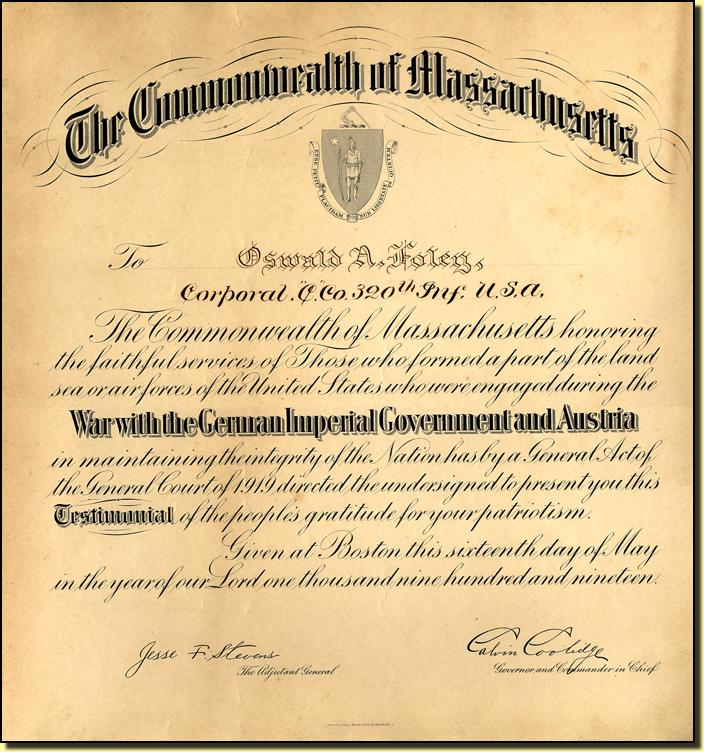 The Commonwealth of Massachusetts
ENSE PETIT PLACIDAM SUB LIBERTATE QUIETEM
To Oswald A. Foley,
Corporal. "C". Co. 320th Inf. U.S.A.
The Commonwealth of Massachusetts honoring
the faithful services of Those who formed a part of the land
sea or air forces of the United States who were engaged during the
War with the German Imperial Government and Austria
in maintaining the integrity of the Nation has by a General Act of
the General Court of 1919 directed the undersigned to present you this
Testimonial of the people's gratitude for your patriotism.
Given at Boston this sixteenth day of May
in the year of our Lord one thousand nine hundred and nineteen.
Jesse F. Stevens
The Adjutant General
Calvin Coolidge
Governor and Commander in Chief